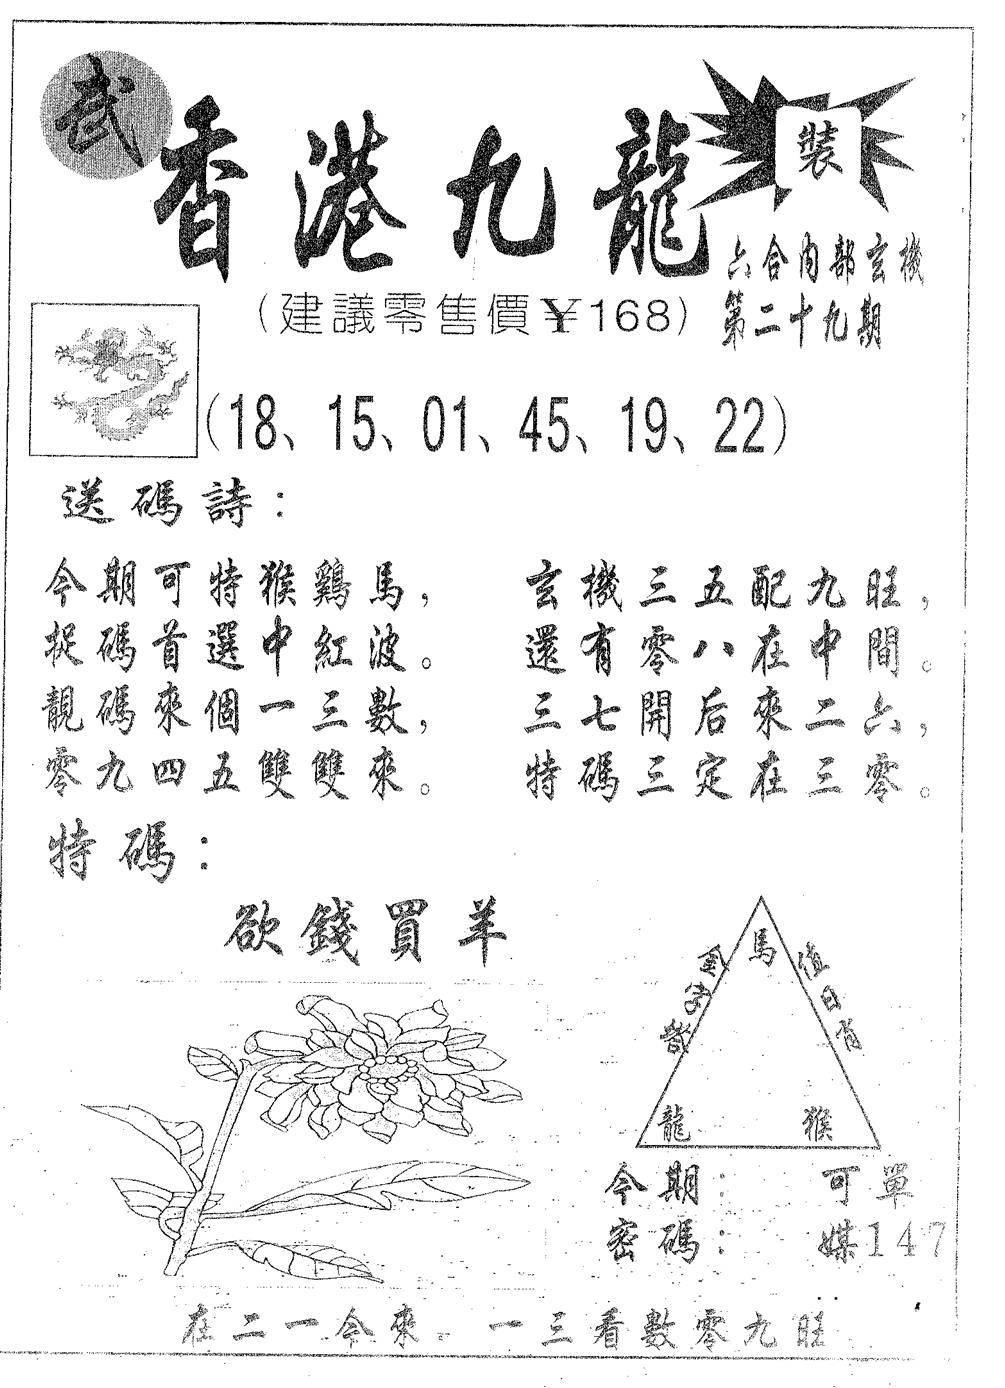 武
香港九龍
裝
六合内部玄機
第二十九期
(建議零售價¥168)
(18、15、01、45、19、22)
送碼詩:
今期可特猴鷄馬,
捉碼首選中紅波。
靚碼來個一三數,
零九四五雙雙來。
玄機三五配九旺,
還有零八在中間。
三七開后來二六,
特碼三定在三零。
特碼:
欲錢買羊
金字塔
馬
值日肖
龍 猴
今期: 可單
密碼: 媒147
在二一今來。一三看數零九旺